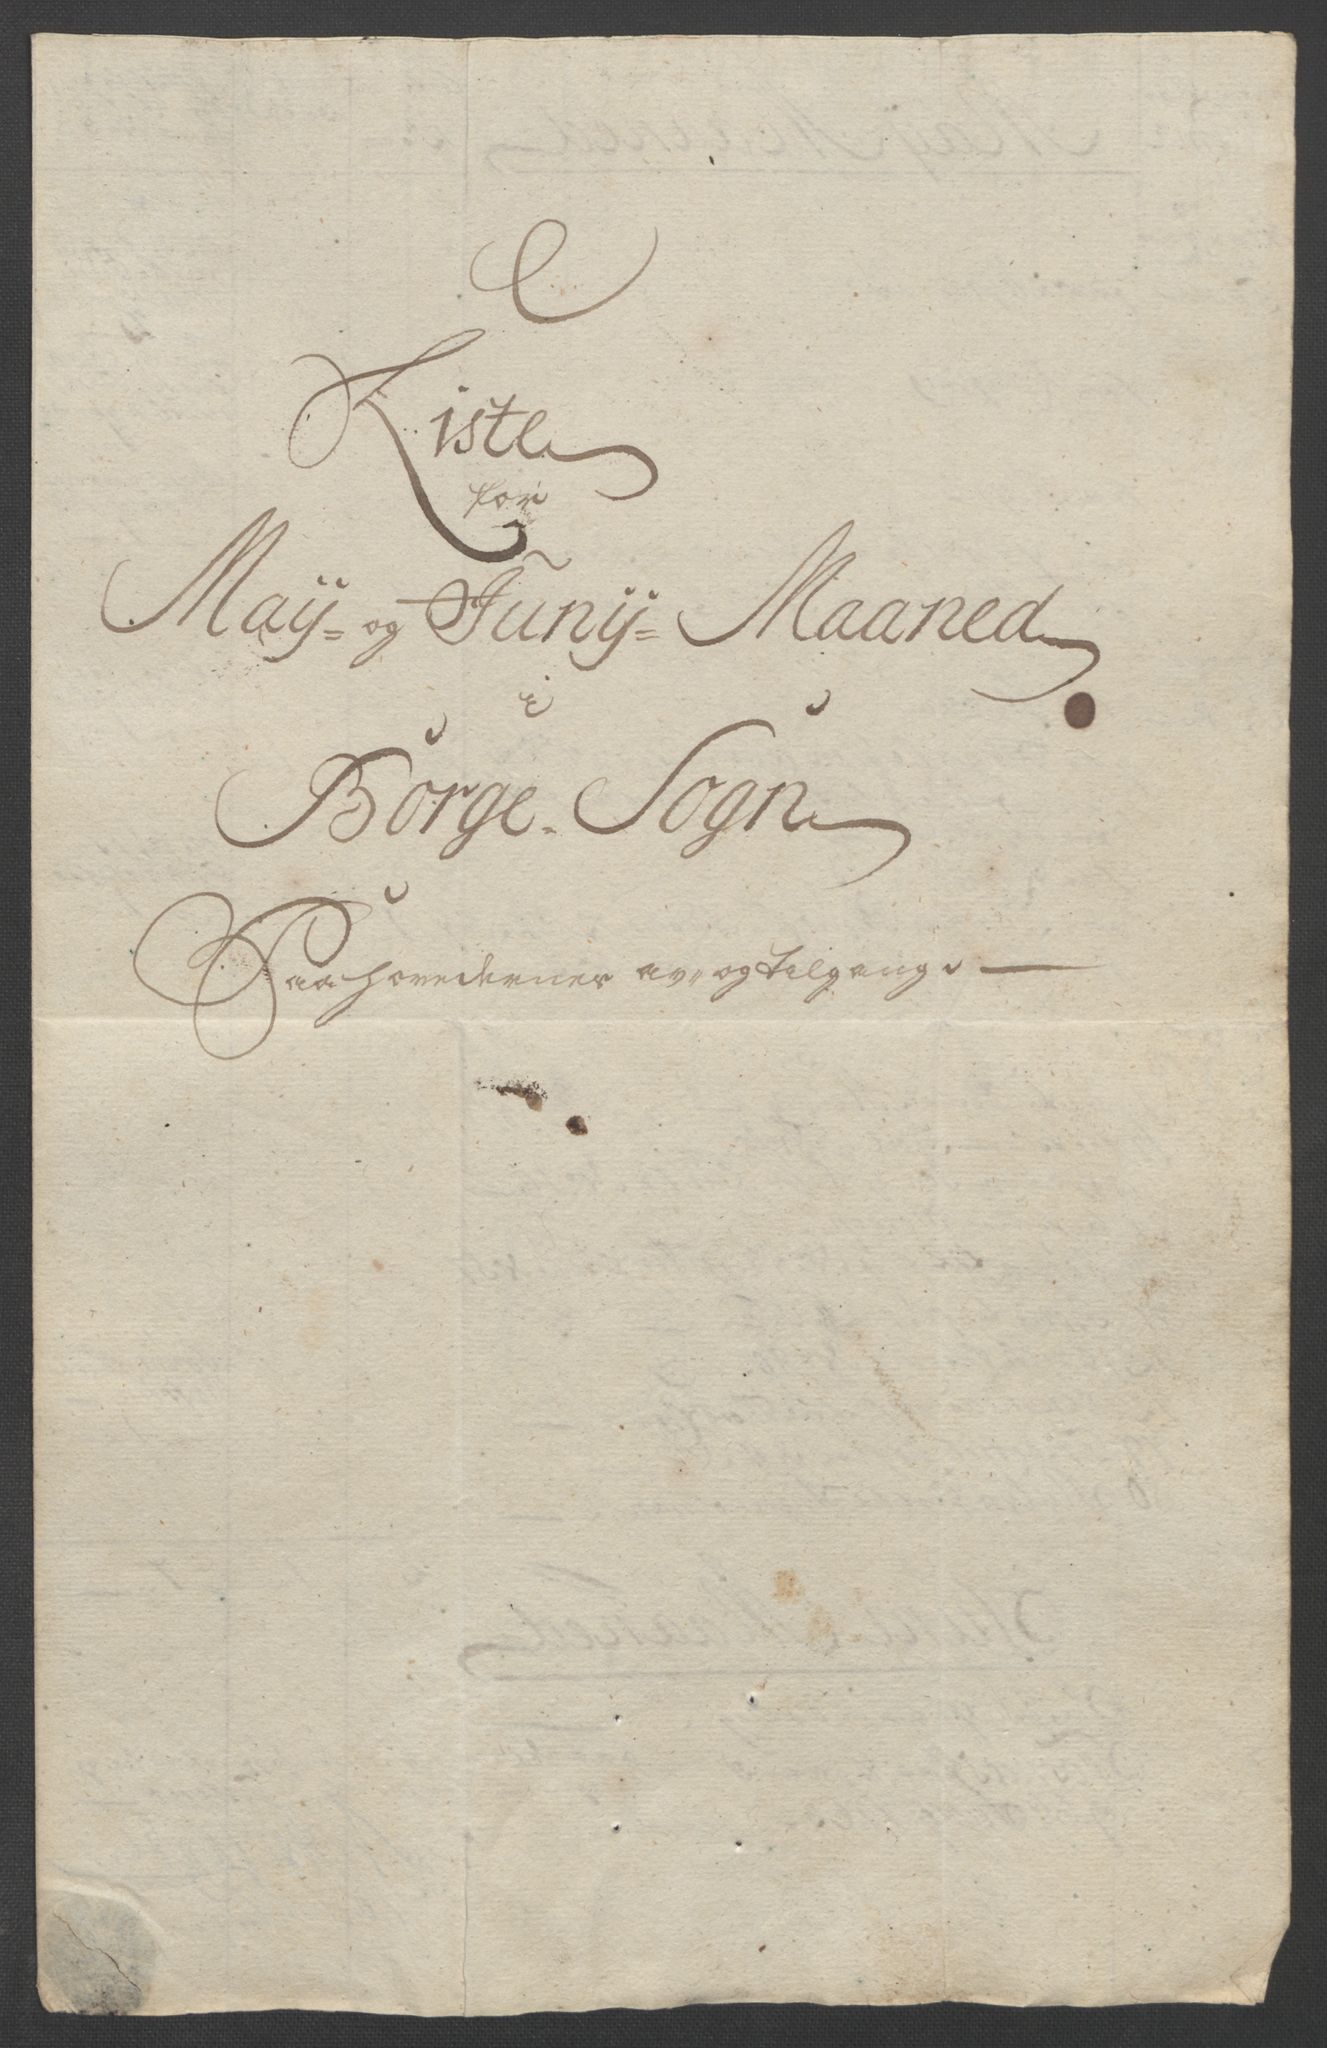 Liste
for
Maij- og Junij- Maaned
i
Borge- Sogn
Paa hovedernes av- og tilgang